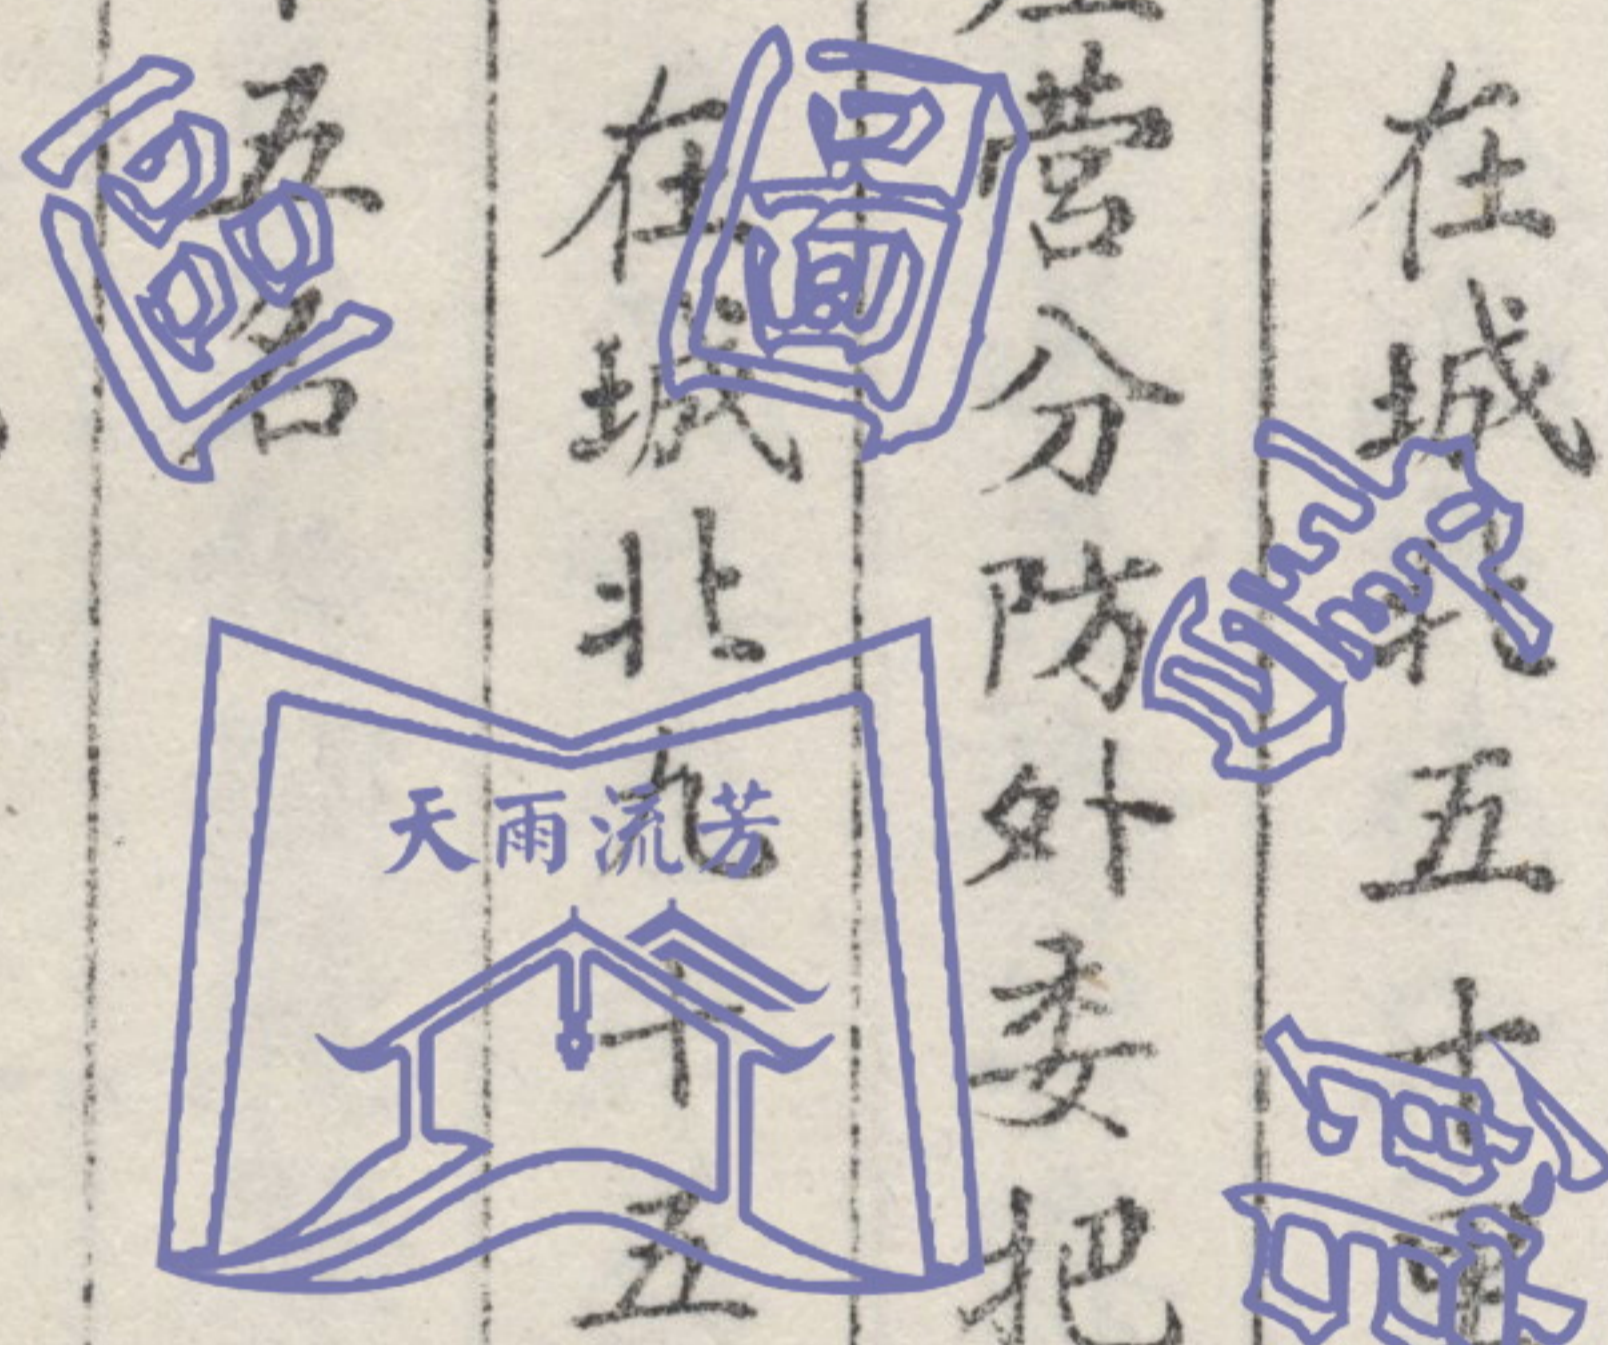 在城北五十里
營分防外委把
在城北九十五
五名
天雨流芳
區
圖
書